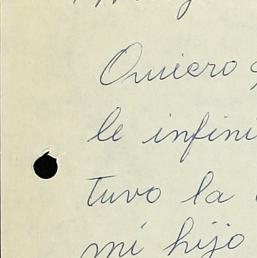 Quiero
le infini
tuvo la
mi hijo